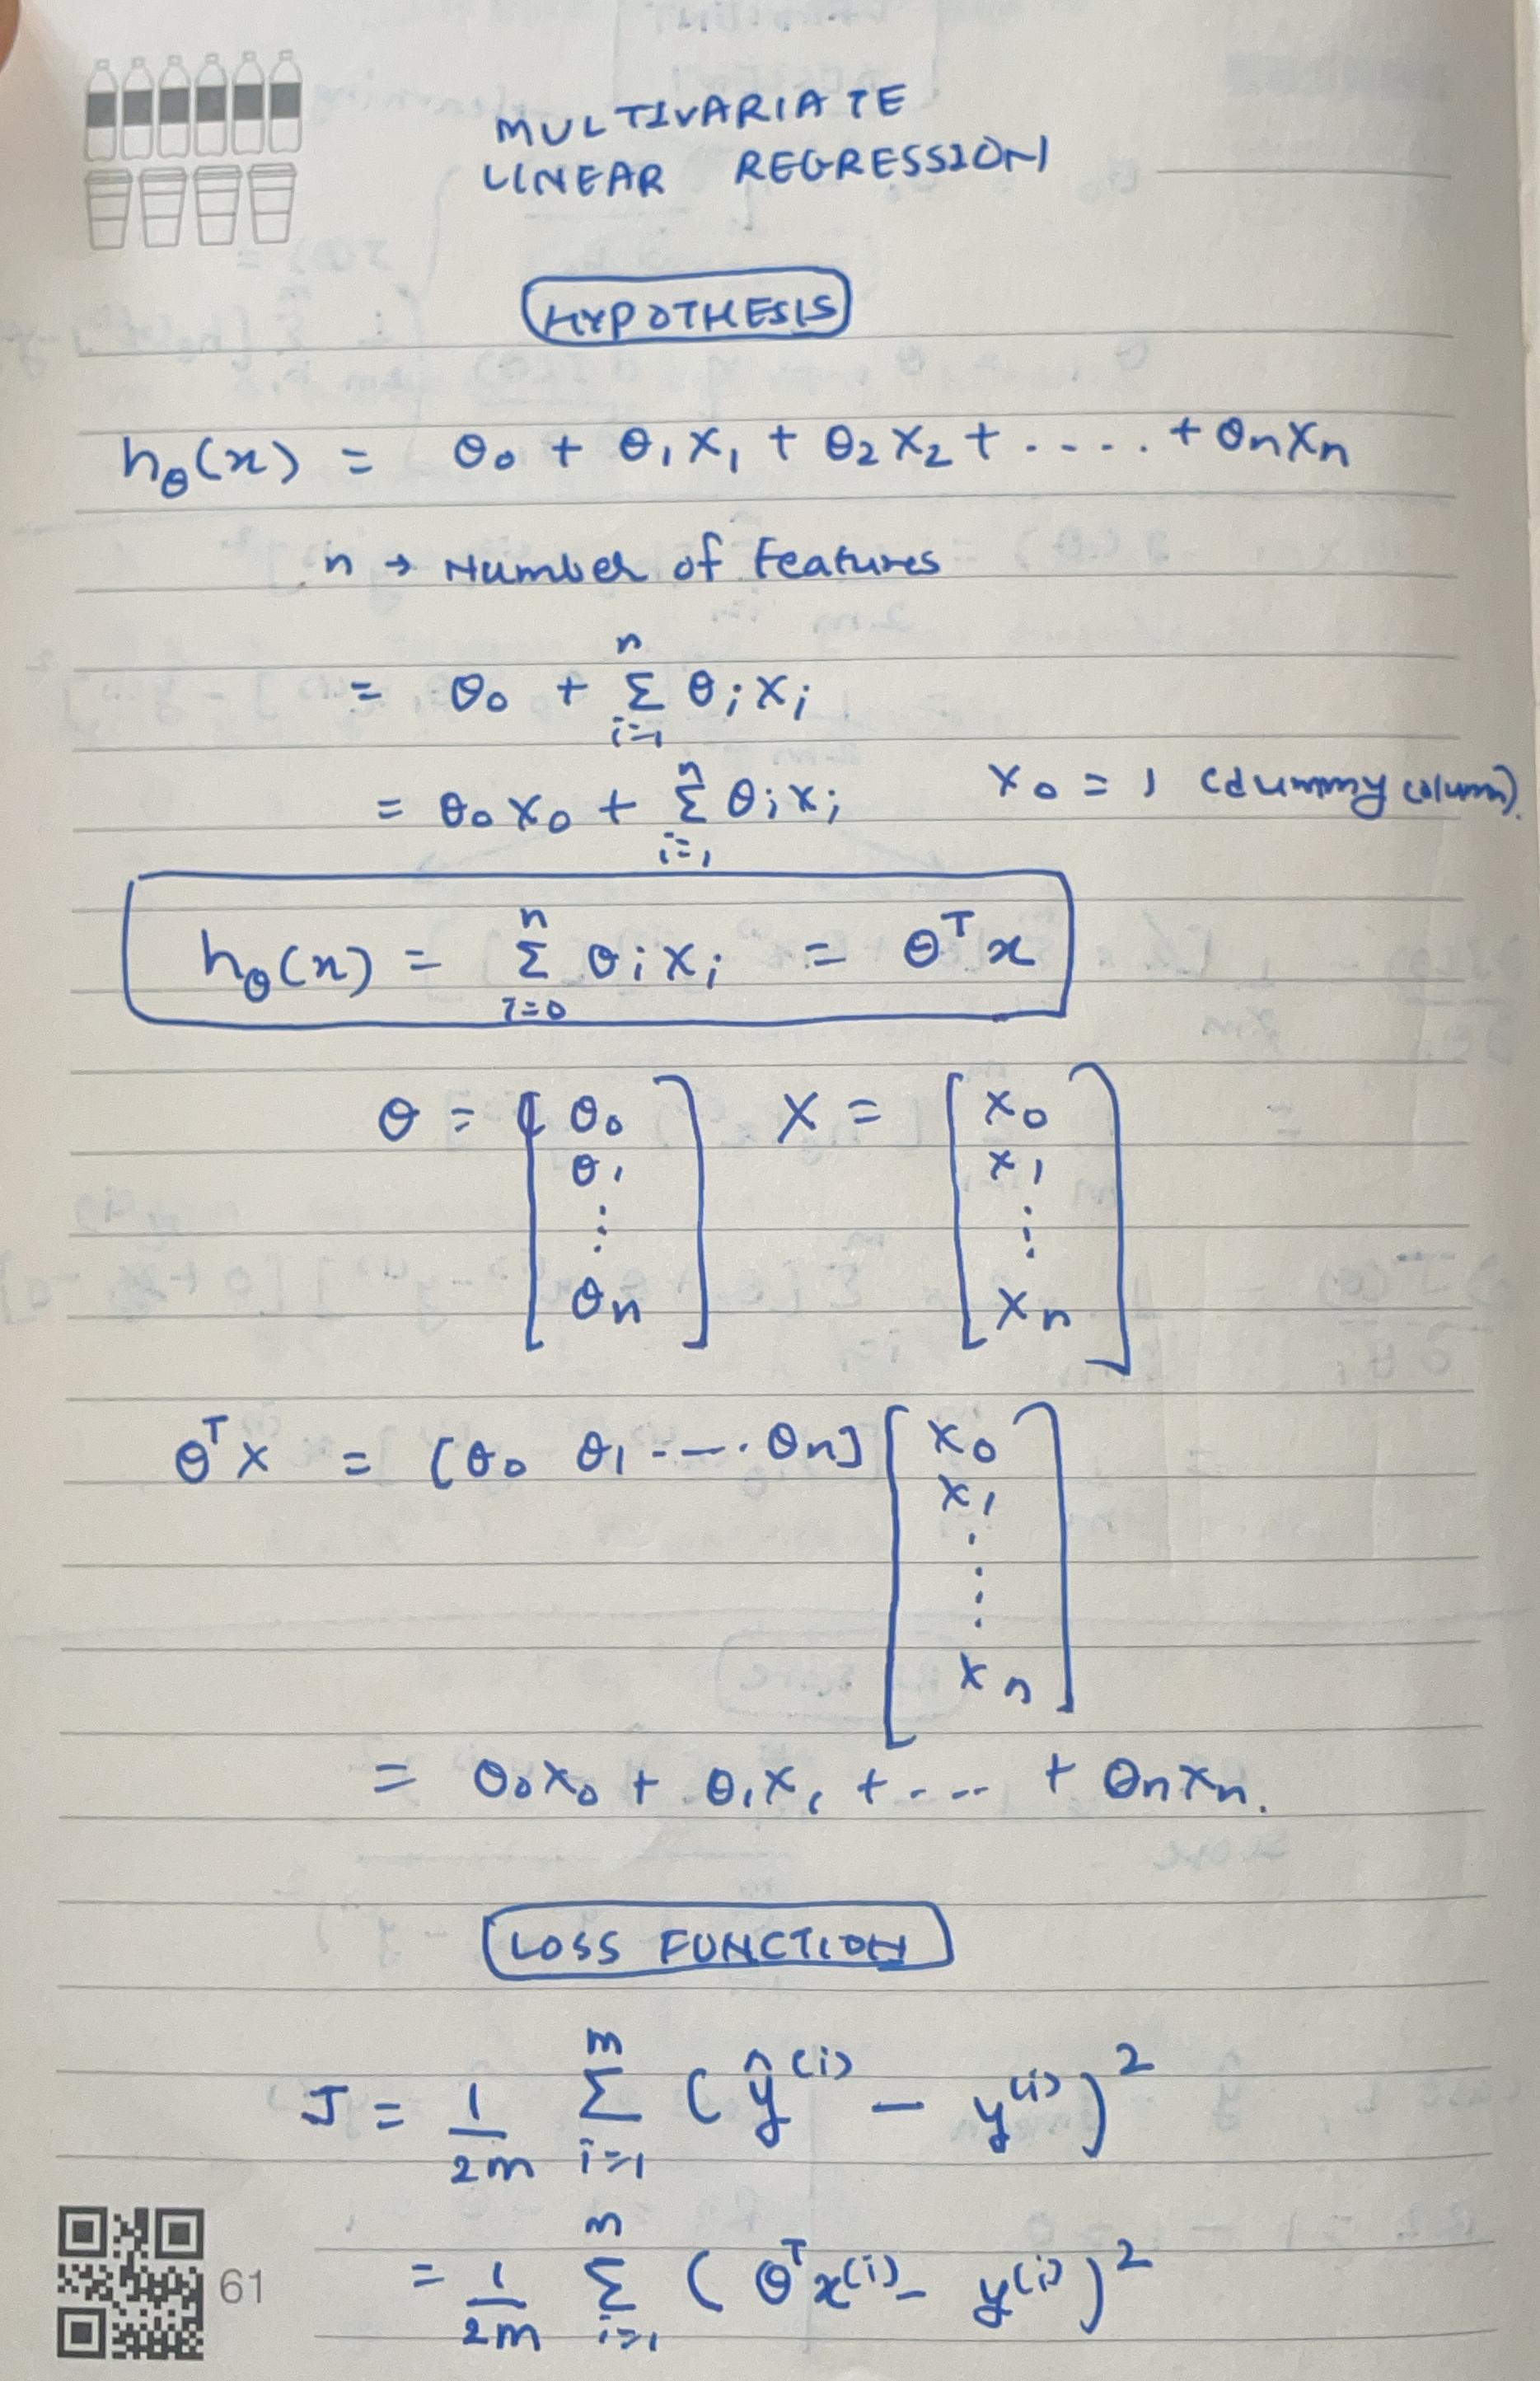 MULTIVARIATE
LINEAR REGRESSION
HYPOTHESIS
hθ(x) = θ₀ + θ₁x₁ + θ₂x₂ + ..... + θₙxₙ
n → Number of features
= θ₀ + Σⁿᵢ₌₁ θᵢxᵢ
= θ₀x₀ + Σⁿᵢ₌₁ θᵢxᵢ x₀ = 1 (dummy column).
hθ(x) = Σⁿᵢ₌₀ θᵢxᵢ = θᵀx
θ = [θ₀ θ₁ ⋮ θₙ] X = [x₀ x₁ ⋮ xₙ]
θᵀx = [θ₀ θ₁ ..... θₙ] [x₀ x₁ ⋮ xₙ]
= θ₀x₀ + θ₁x₁ + .... + θₙxₙ.
LOSS FUNCTION
J = 1/2m Σᵐᵢ₌₁ (ŷ⁽ⁱ⁾ − y⁽ⁱ⁾)²
= 1/2m Σᵐᵢ₌₁ (θᵀx⁽ⁱ⁾ − y⁽ⁱ⁾)²
61